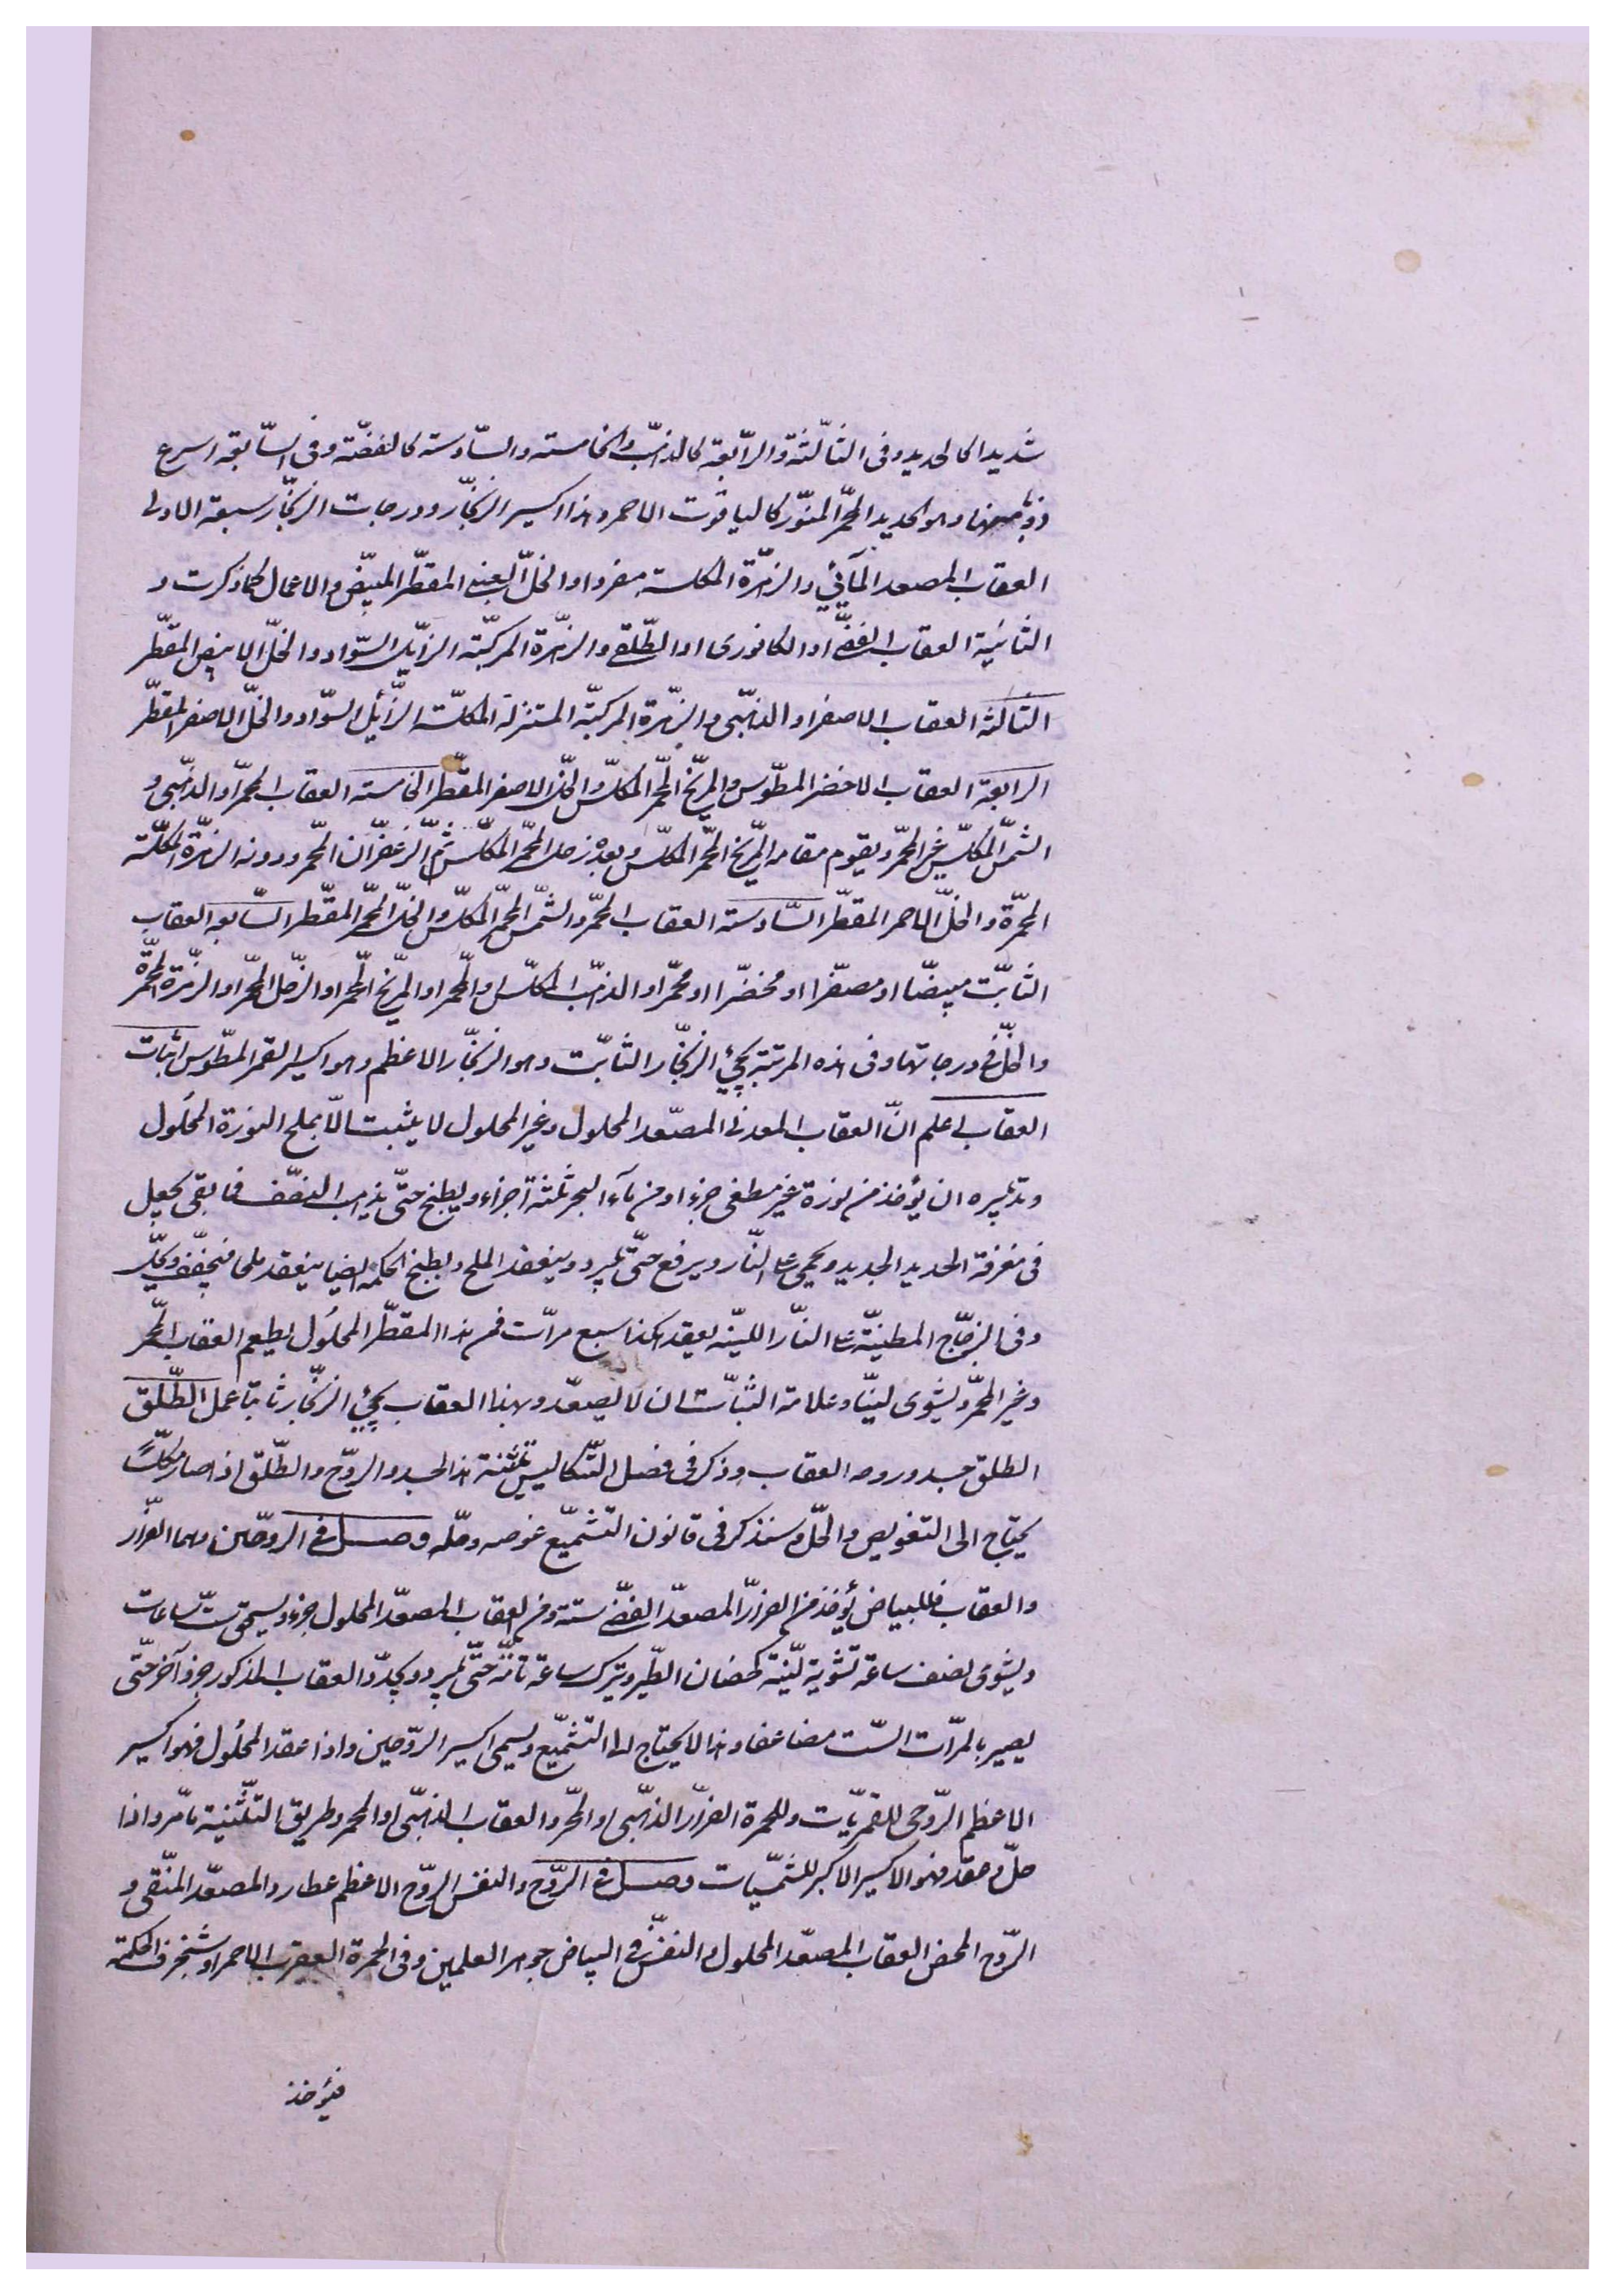 شديدا كالحديد وفى الثالثة والرابعة كالذهب والخامسة والسادسة كالفضة وفى السابعة اسرع
ذوبا منها وهو الحديد المحمّر المنوّر كالياقوت الاحمر وهذا اكسير الزنجّار ودرجات الزنجّار سبعة الاولى
العقاب المصعد المآئي والزهرة المكلسة مفردا والخلّ العنبى المقطّر المبيّض والاعمال كما ذكرت و
الثانية العقاب الفضّى او الكافورى او الطّلقى والزهرة المركبّة الزّايل السّواد والخلّ الابيض المقطّر
الثالثة العقاب الاصفر او الذهبّى والزهرة المركبّة المستنزلة المكلسّة الزّايل السّواد والخلّ الاصفر المقطّر
الرابعة العقاب الاخضر المطوّس والمرّيخ المحمّر المكلّس والخلّ الاصفر المقطّر الخامسة العقاب المحمّر او الذهّبى و
الشمّس المكلّس غير المحمّر ويقوم مقامه المرّيخ المحمّر المكلّس وبعده زحل المحمّر المكلّس ثمّ الزّعفّران المحمّر ودونه الزهرّة المكلسّة
المحمّرة والخلّ الاحمر المقطّر السّادسة العقاب المحمّر والشمّس المحمّر المكلّس والخلّ المحمّر المقطّر السّابعة العقاب
الثابّت مبيضّا او مصفّرا او مخضّرا او محمّرا والذهبّ المكلّس المحمّر او المرّيخ المحمّر او الزّحل المحمّر او الزّهرة المحمّرة
والخلّ فى درجاتها وفى هذه المرتبة يجئ الزنجّار الثابّت وهو الزنجّار الاعظم وهو اكسير القمر المطوّس اثبات
العقاب اعلم انّ العقاب المعدنى المصعّد المحلول وغير المحلول لا يثبت الّا بملح النورة المحلول
وتدبيره ان يؤخذ من نورة غير مطفى جزءا ومن مآء البحر ثلثة اجزاء ويطبخ حتّى يذهب النصّف فما بقى يجعل
فى مغرفة الحديد الجديد ويحمى على النّار ويرفع حتّى يبرد وينعقد الملح ويطبخ الحكمه ايضا ينعقد ملحا فيجفّف ويحلّ
وفى الزجّاج المطينّة على النّار اللينّه يعقد هكذا سبع مرّات فمن هذا المقطّر المحلُول يطعم العقاب المحمّر
وغير المحمّر ويشوى لينّا وعلامة الثبّات ان لا يصعّد وبهذا العقاب يجئ الزنجّار ثابتا عمل الطّلق
الطلق جسد وروحه العقاب وذكر فى فصل التّكاليس تثنية هذا الجسد والروّح والطّلق اذا صار مكلّسًا
يحتاج الى التغويص والحلّ وسنذكر فى قانون التشميّع غوصه وحلّه وصل فى الروحّين وهما الفرّار
والعقاب فللبياض يؤخذ من الفرار المصعدّ الفضّى ستة ومن العقاب المصعدّ المحلول جزء ويسحق ستّ ساعات
ويشوى نصف ساعة تشوية ليّنة كحضان الطّير ويترك ساعة تامّة حتّى يبرد ويجدّد العقاب المذكور جزءا آخر حتّى
يصير بالمرّات الستّ مضاعفا وهذا لا يحتاج الى التشميّع ويسمى اكسير الروّحين واذا عقد المحلُول فهو اكسير
الاعظم الرّوحى للقمريّات وللحمرة الفرّار الذهبّى او المحمّر والعقاب الذهبّى او المحمر وطريق التثّنية ما مّر واذا
حلّ وعقد فهو الاكسير الاكبر للشمسيّات وصل فى الرّوح والنفس الروّح الاعظم عطارد المصعّد المنقّى و
الرّوح المحض العقاب المصعّد المحلول والنفسّ فى البياض جوهر العلمين وفى الحمرة العقرب الاحمر او شنجرف الحكمة
فيؤخذ